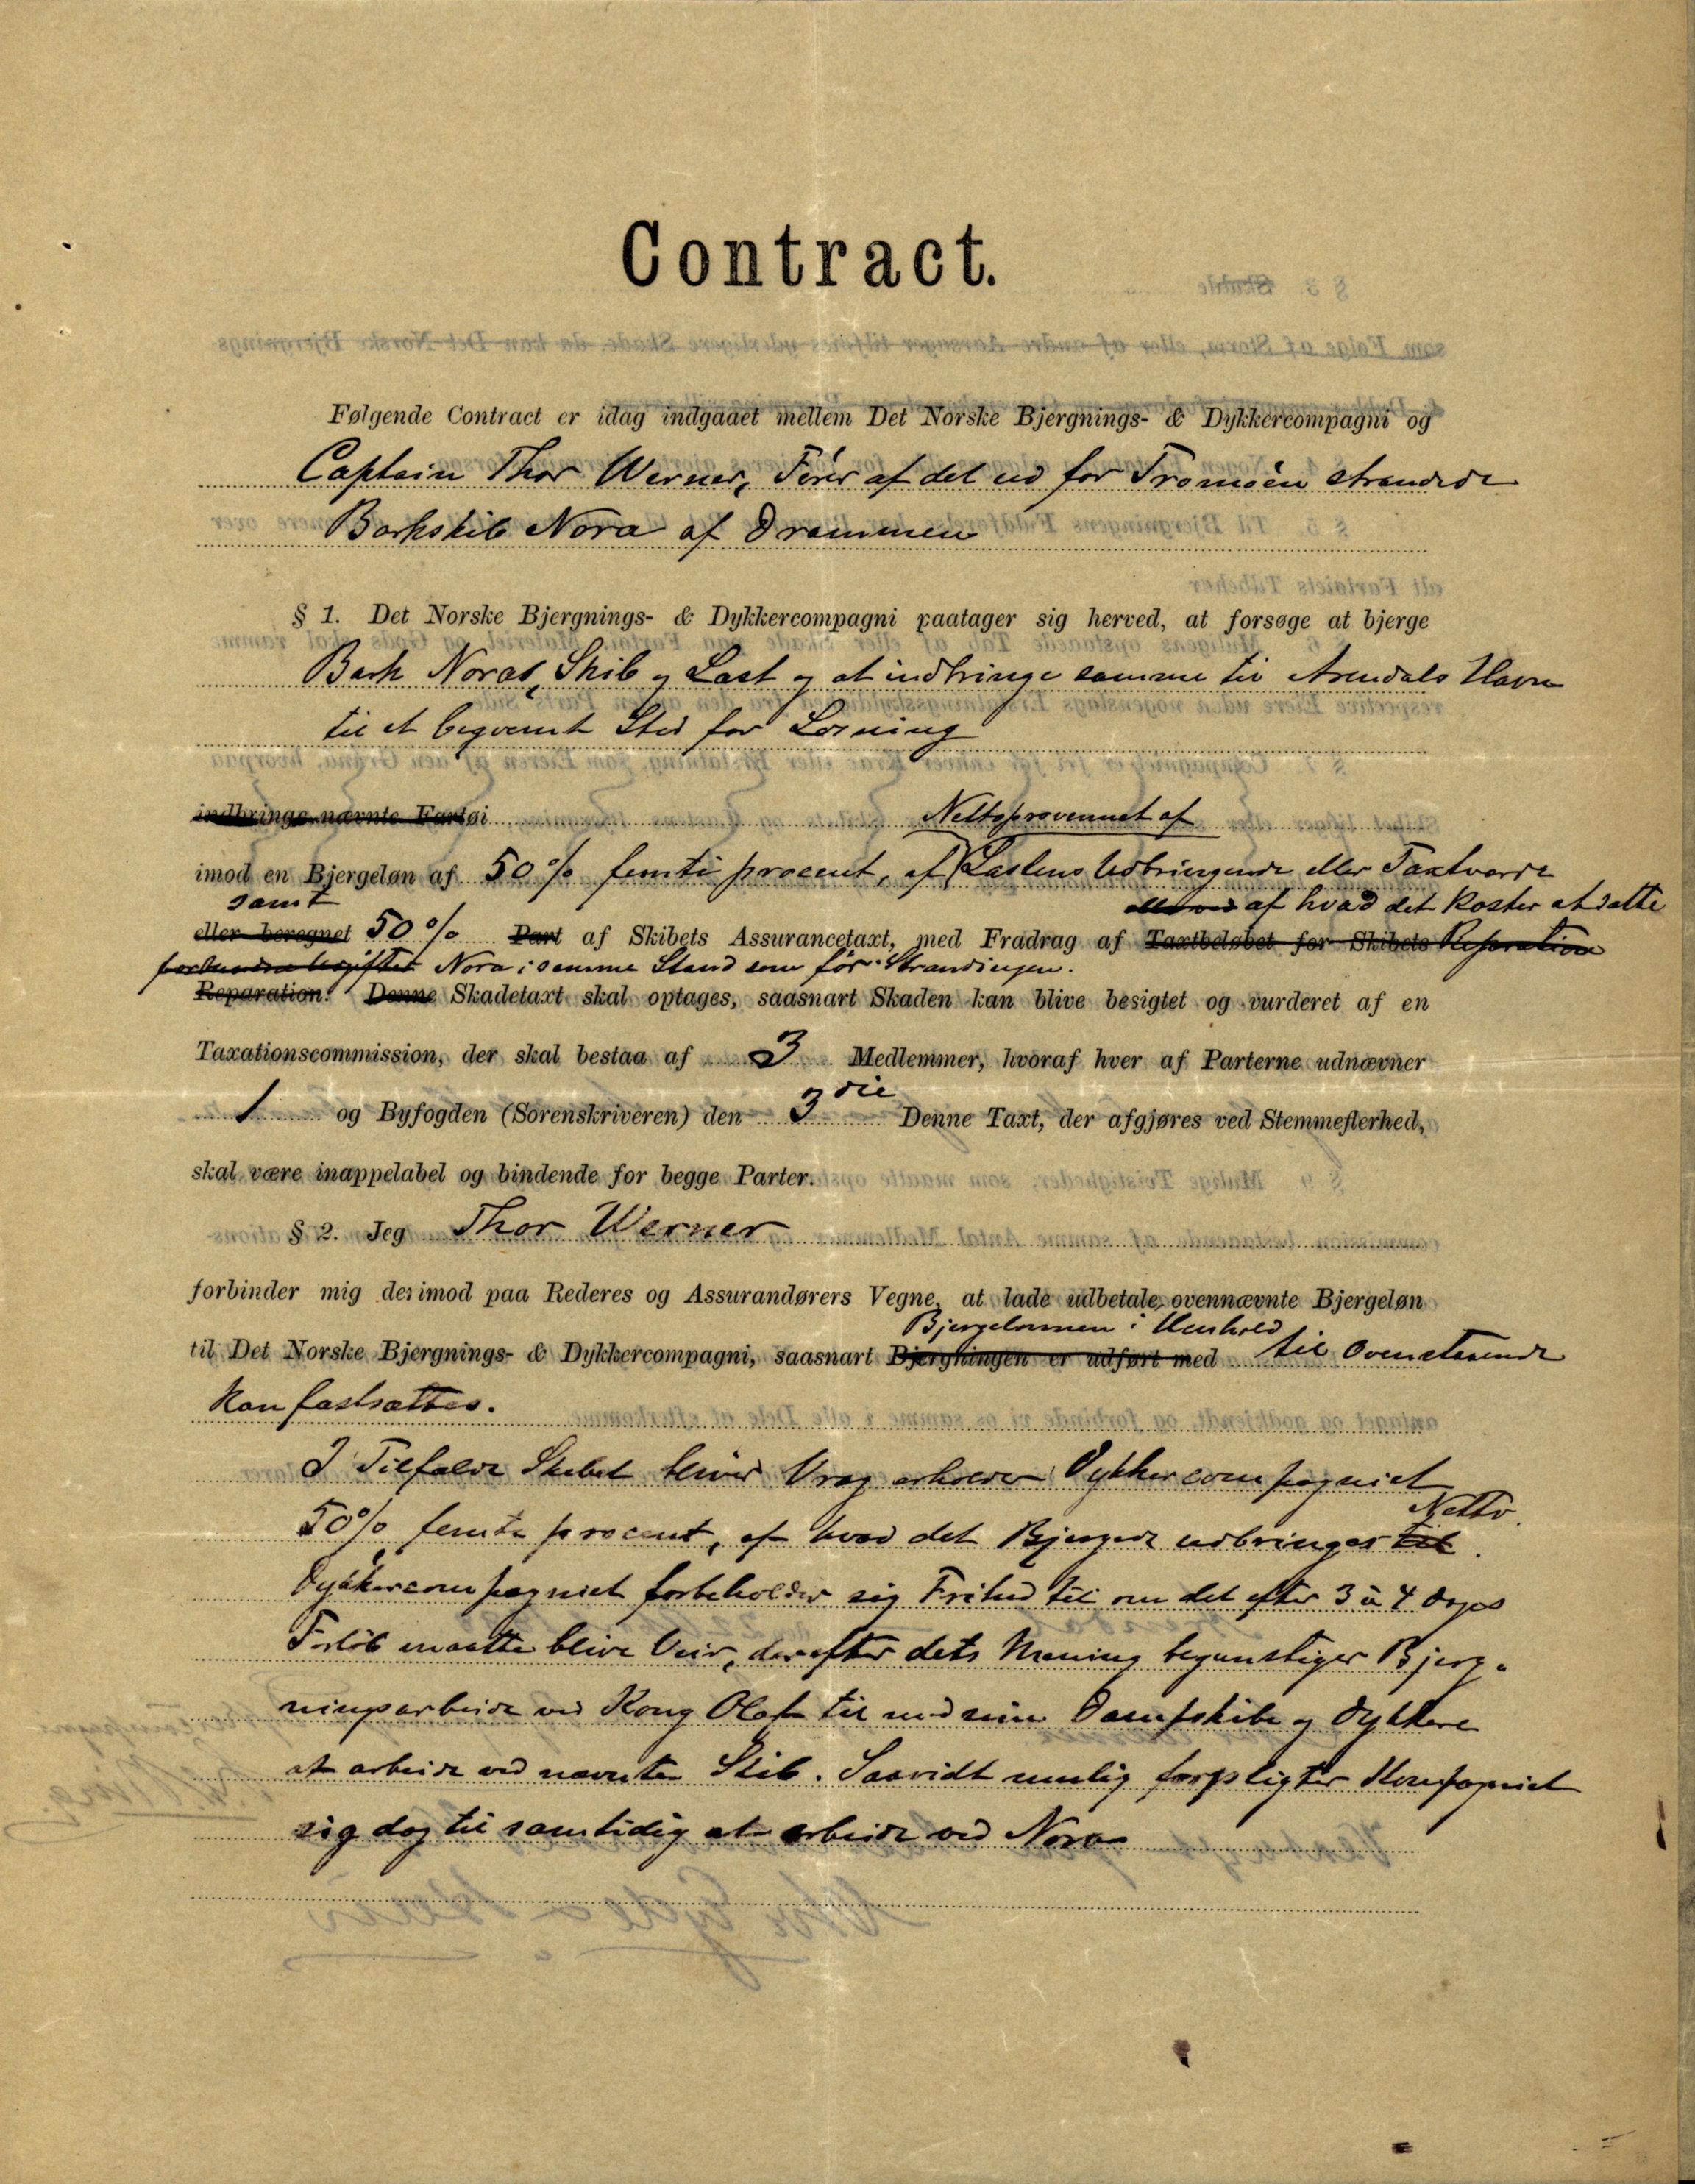 Contract.
Følgende Contract er idag indgaaet mellem Det Norske Bjergnings- & Dykkercompagni og
Captain Thor Werner, Fører af det ud for Tromöen strandede
Barkskib Nora af Drammen
§ 1. Det Norske Bjergnings- & Dykkercompagni paatager sig herved, at forsøge at bjerge
Bark Noras, Skib og Last og at indbringe samme til Arendals Havn
til et beqvemt Sted for Losning
indbringe nævnte Fartøi
Nettoprovenuet af
imod en Bjergeløn af 50% femti procent, af Lastens Udbringende eller Taxtværdi
samt
af hvad det koster at sætte
eller beregnet 50% Part af Skibets Assurancetaxt, med Fradrag af Taxtbeløbet for Skibets Reparation
Nora i samme Stand som før Strandingen.
Reparation. Denne Skadetaxt skal optages, saasnart Skaden kan blive besigtet og vurderet af en
Taxationscommission, der skal bestaa af 3 Medlemmer, hvoraf hver af Parterne udnævner
1 og Byfogden (Sorenskriveren) den 3die Denne Taxt, der afgjøres ved Stemmeflerhed,
skal være inappelabel og bindende for begge Parter.
§ 2. Jeg Thor Werner
forbinder mig derimod paa Rederes og Assurandørers Vegne, at lade udbetale ovennævnte Bjergeløn
Bjergelønnen i Henhold
til Det Norske Bjergnings- & Dykkercompagni, saasnart Bjergningen er udført med til Ovenstaaende
kan fastsættes.
I Tilfælde Skibet bliver Vrag erholder Dykkercompagniet
Netto
50% femti procent, af hvad det Bjergede udbringes til.
Dykkercompagniet forbeholder sig Frihed til om det efter 3 à 4 Dages
Forløb maatte blive Veir, der efter dets Mening begunstiger Bjerg-
ningsarbeide ved Kong Olaf til med sine Dampskibe og Dykkere
at arbeide ved nævnte Skib. Saavidt mulig forpligter Kompagniet
sig dog til samtidig at arbeide ved Nora